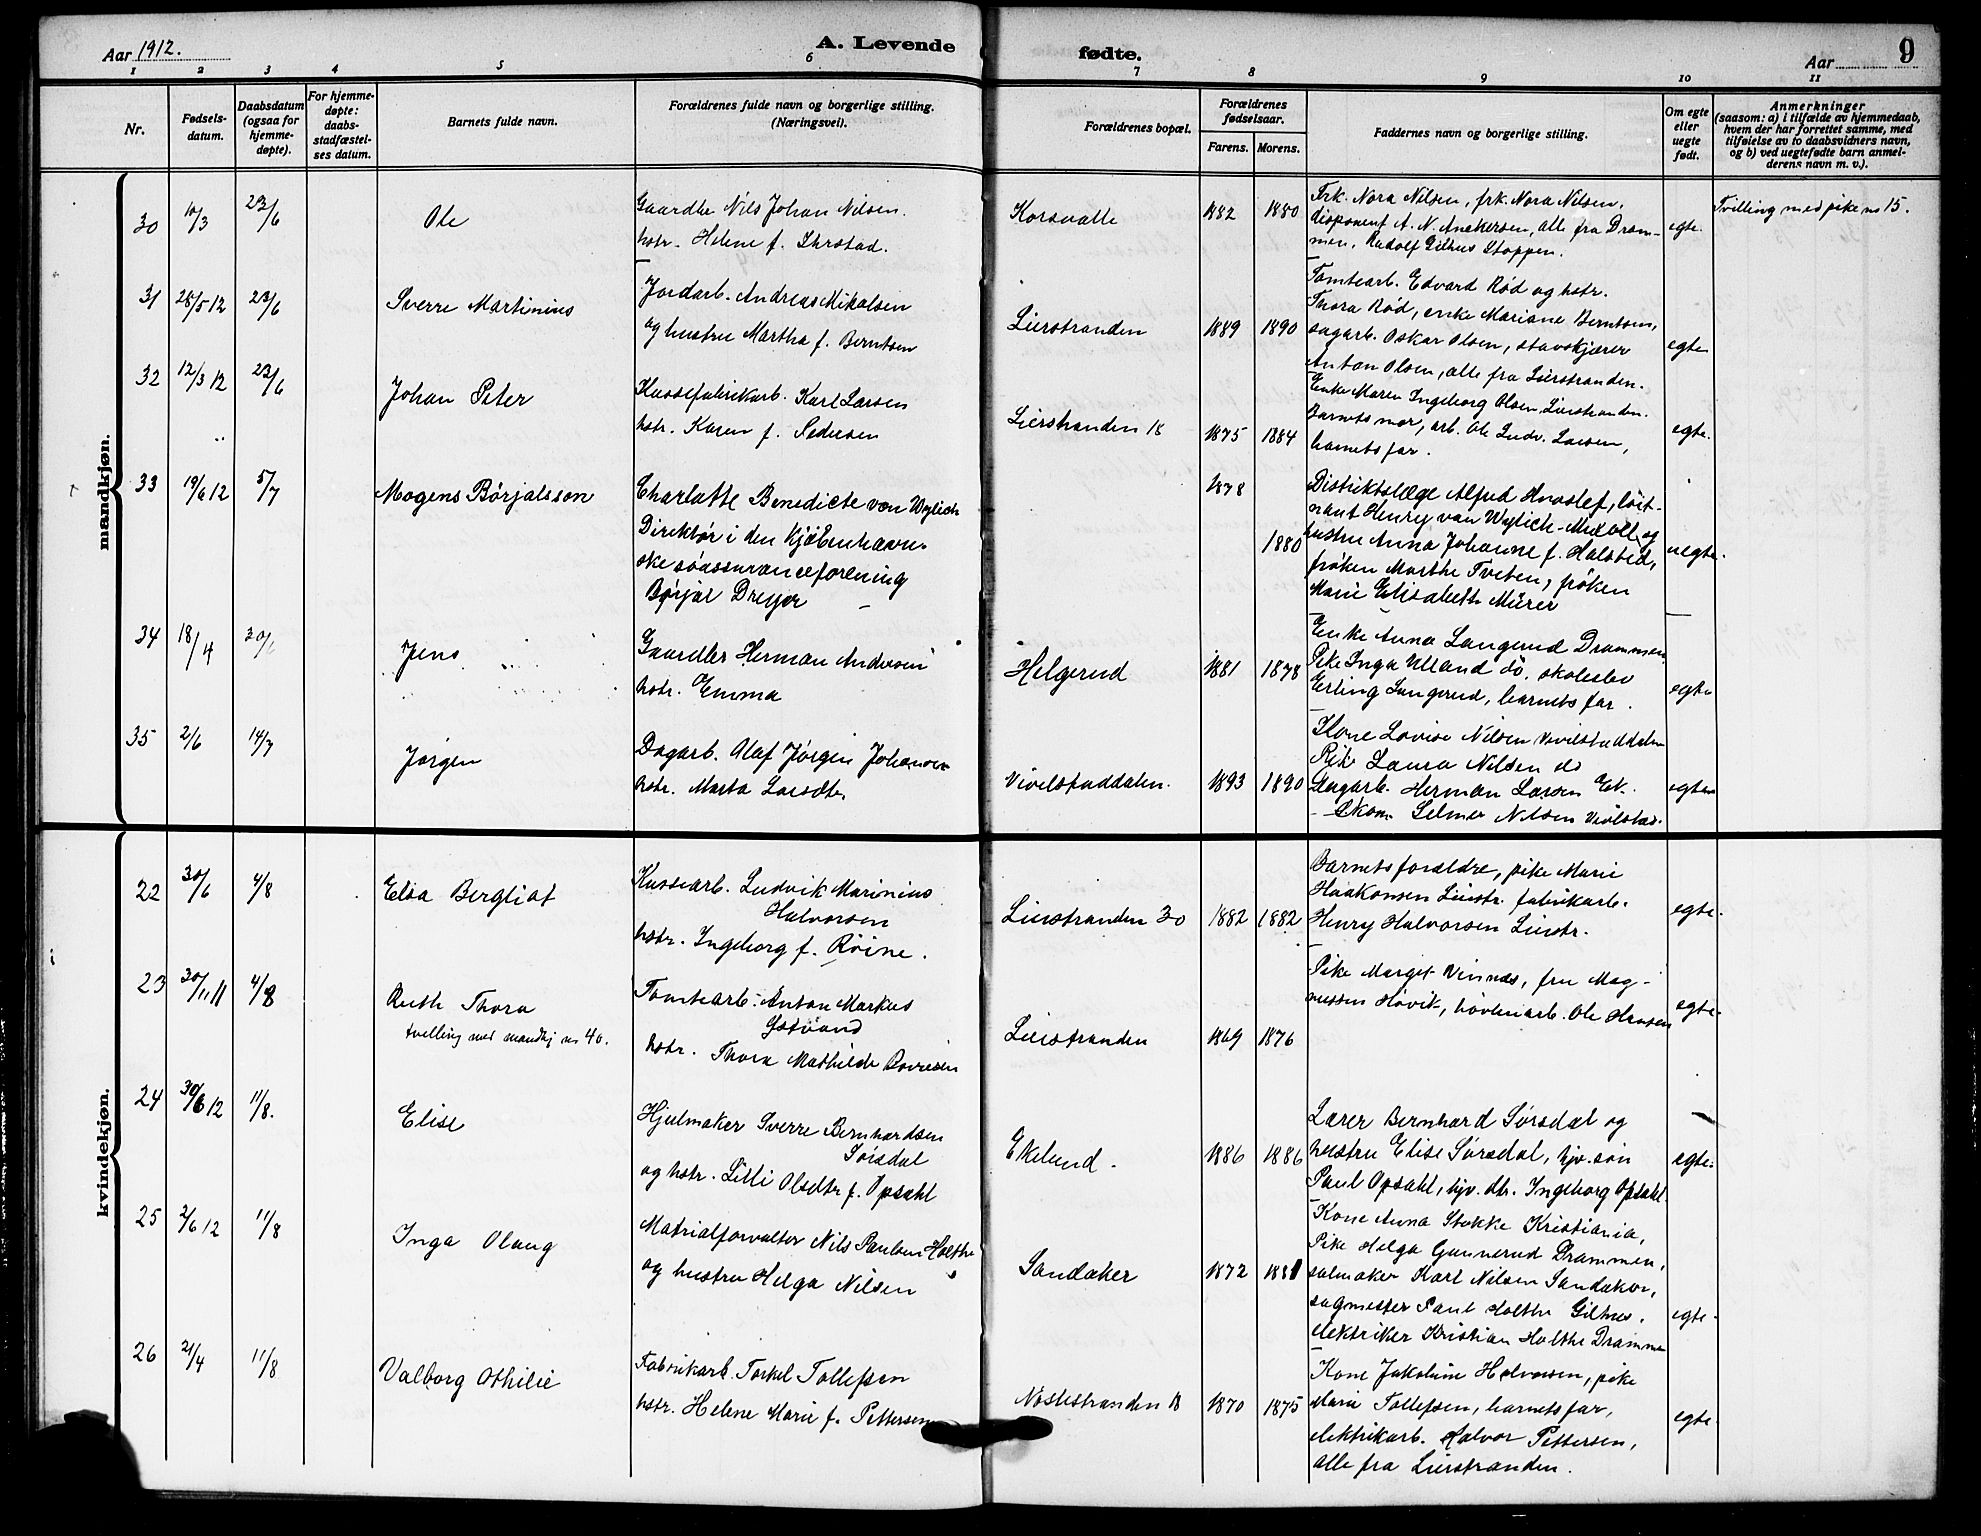 Aar 1912.
A. Levende
fødte.
Aar
9
1 2 3 4 5 6 7 8 9 10 11
Nr.
Fødsels-
datum.
Daabsdatum
(ogsaa for
hjemme-
døpte).
For hjemme-
døpte:
daabs-
stadfæstel-
ses datum.
Barnets fulde navn.
Forældrenes fulde navn og borgerlige stilling.
(Næringsvei).
Forældrenes bopæl.
Forældrenes
fødselsaar.
Farens. Morens.
Faddernes navn og borgerlige stilling.
Om egte
eller
uegte
født.
Anmerkninger
(saasom: a) i tilfælde av hjemmedaab,
hvem der har forrettet samme, med
tilføielse av to daabsvidners navn,
og b) ved uegtefødte barn anmel-
derens navn m. v.).
mandkjøn.
30
10/3
23/6
Ole
Gaardbr Nils Johan Nilsen.
hstr. Helene f.
Korsvalle
1882 1880
Frk. Nora Nilsen, frk. Nora Nilsen,
disponent A. N. Anckersen, alle fra Dram-
men, Rudolf Gilhus Stoppen.
egte.
Tvilling med pike no 15.
31
28/5 12
23/6
Sverre Martinius
Jordarb. Andreas Mikalsen
og hustru Martha f. Berntsen
Lierstranden
1889 1890
Tomtearb. Edvard Rød og hstr.
Thora Rød, enke Mariane Berntsen,
sagarb. Oskar Olsen, stavskjærer
Anton Olsen, alle fra Lierstranden.
egte
32
12/3 12
23/6
Johan Peter
Kassefabrikarb. Karl Larsen
hstr. Karen f. Pedersen
Lierstranden 18
1875 1884
Enke Maren Ingeborg Olsen, Lierstranden.
Barnets mor, arb. Ole Ludv. Larsen,
barnets far.
egte.
33
19/6 12
5/7
Mogens Børjalsson
Charlotte Benedicte von Wylich
Direktør i den Kjøbenhavn-
ske søassuranceforening
Børjal Dreyer
1878
1880
Distriktslæge Alfred Hvoslef, løit-
nant Henry von Wylich-Muxoll og
hustru Anna Johanne f. Halsted,
frøken Marthe Tveten, frøken
Marie Elisabeth Mürer
uegte.
34
18/4
30/6
Jens
Gaardbr Herman Andersen
hstr. Emma
Helgerud
1881 1878
Enke Anna Langerud Drammen.
Pike Inga Ulland do. skoleelev
Erling Langerud, barnets far.
egte
35
2/6
14/7
Jørgen
Dagarb. Olaf Jørgen Johansen
hstr. Marta Larsdtr.
Vivelstaddalen.
1893 1890
Kone Lovise Nilsen Vivelstaddalen
Pike Laura Nilsen do
Dagarb. Herman Larsen Ek.
Skom. Selmer Nilsen Vivlstad.
egte
kvindekjøn.
22
30/6
4/8
Elsa Bergliot
Kassearb. Ludvik Marinius
Halvorsen
hstr. Ingeborg f. Røine.
Lierstranden 30
1882 1882
Barnets forældre, pike Marie
Haakonsen Lierstr. fabrikarb.
Henry Halvorsen Lierstr.
egte.
23
30/11 11
4/8
Ruth Thora
tvilling med mandkj no 40.
Tomtearb. Anton Markus
Østvand
hstr. Thora Mathilde Bovresen
Lierstranden
1869 1876
Pike Marget Vinnæs, fru Mag-
nussen Høvik, høvleriarb. Ole Hansen
egte.
24
30/6 12
11/8.
Elise
Hjulmaker Sverre Bernhardsen
Sørsdal
og hstr. Lilli Olsdtr f. Opsahl
Ekelund.
1886 1886
Lærer Bernhard Sørsdal og
hustru Elise Sørsdal, hjv. søn
Paul Opsahl, hjv. dtr. Ingeborg Opsahl
egte.
25
2/6 12
11/8
Inga Olaug
Matrialforvalter Nils Paulsen Holthe
og hustru Helga Nilsen
Sandaker
1872 1881
Kone Anna Stokke Kristiania,
Pike Helga Gunnerud Drammen,
salmaker Karl Nilsen Sandaker,
sagmester Paul Holthe Gilhus,
elektriker Kristian Holthe Drammen
egte.
26
21/4
11/8
Valborg Othilie
Fabrikarb. Torkel Tollefsen
hstr. Helene Marie f. Pettersen
Nøstestranden 18
1870 1875
Kone Jakobine Halvorsen, pike
Marie Tollefsen, barnets far,
elektrikarb. Halvor Pettersen,
alle fra Lierstranden.
egte.